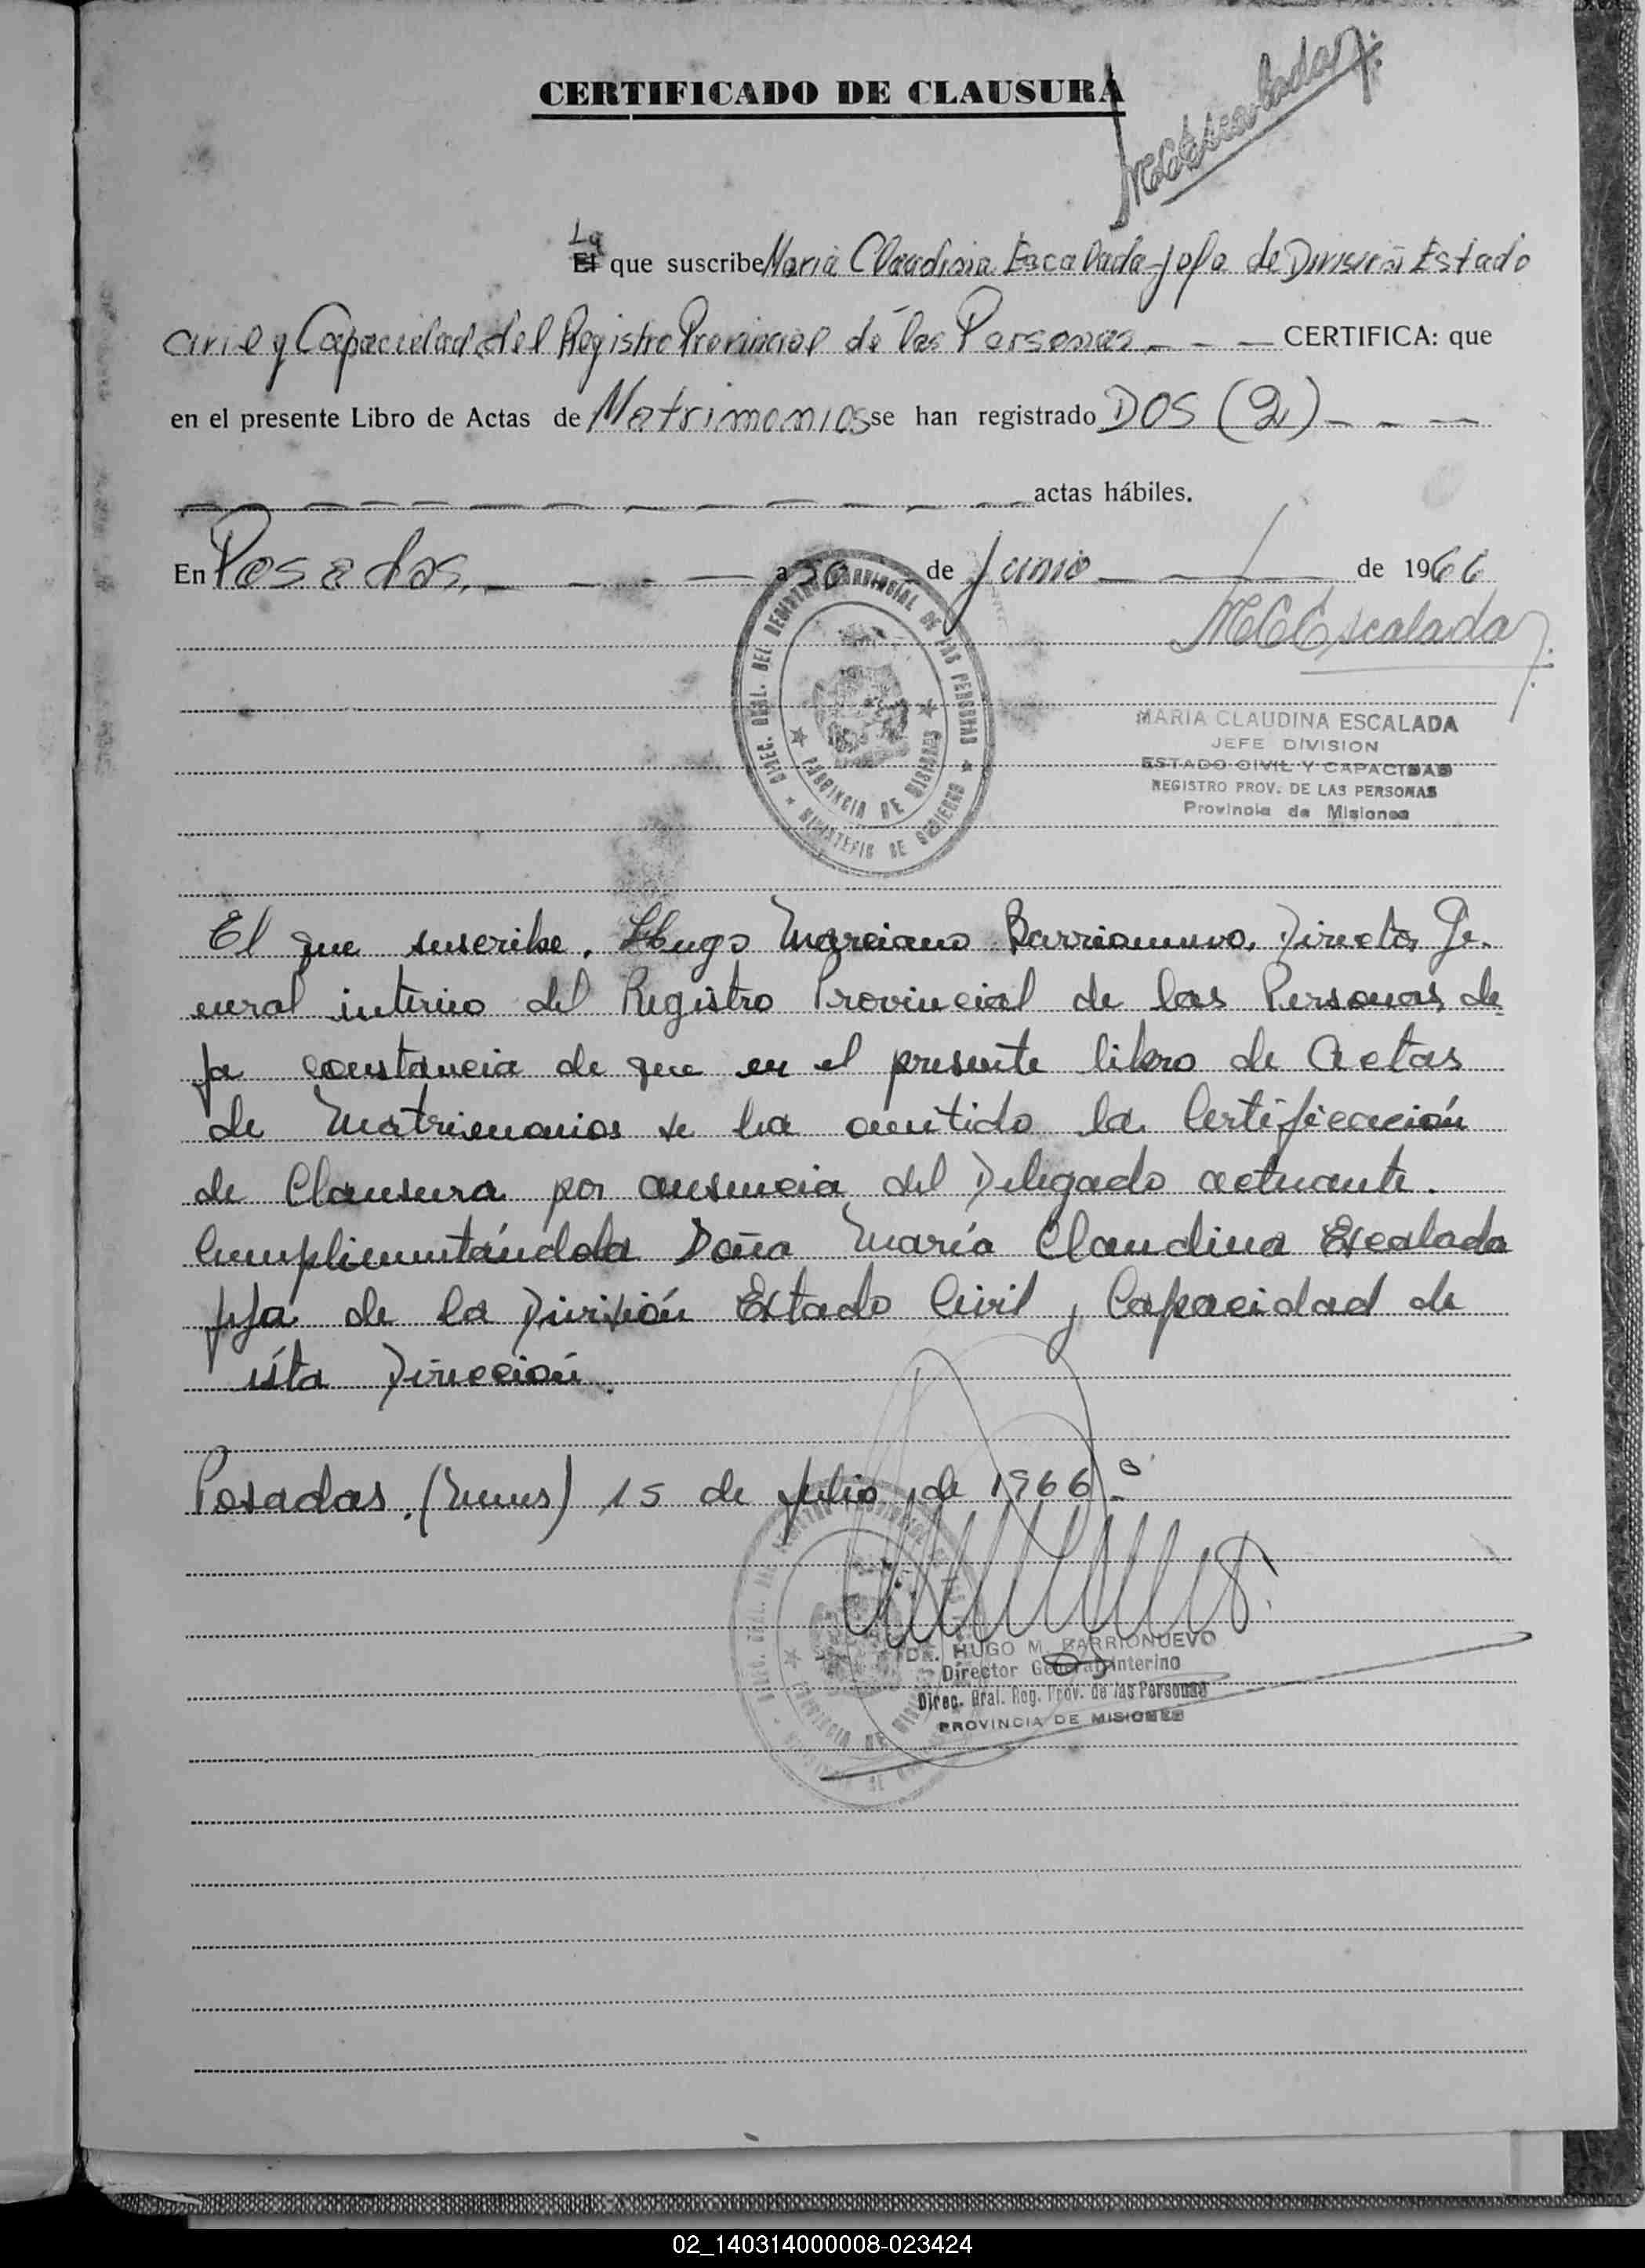 CERTIFICADO DE CLAUSURA
MCEscalada
La
El que suscribe María Claudina Escalada - Jefa de División Estado
Civil y Capacidad del Registro Provincial de las Personas. - - - CERTIFICA: que
en el presente Libro de Actas de Matrimonios se han registrado DOS (2) - - -
- - - - - - - - - - - - actas hábiles.
En Posadas, - - - - a 30 de Junio - - - de 1966
MCEscalada
DIREC. GRAL. DEL REGISTRO PROVINCIAL DE LAS PERSONAS
PROVINCIA DE MISIONES
MINISTERIO DE GOBIERNO
MARIA CLAUDINA ESCALADA
JEFE DIVISION
ESTADO CIVIL Y CAPACIDAD
REGISTRO PROV. DE LAS PERSONAS
Provincia de Misiones
El que suscribe, Hugo Marciano Barrionuevo, Director Ge-
neral interino del Registro Provincial de las Personas, de
ja constancia de que en el presente libro de Actas
de Matrimonios se ha omitido la Certificación
de Clausura por ausencia del Delegado actuante.
Cumplimentándola Doña María Claudina Escalada
jefa de la División Estado Civil y Capacidad de
ésta Dirección.
Posadas, (Mnes) 15 de julio de 1966.-
DR. HUGO M. BARRIONUEVO
Director General Interino
Direc. Gral. Reg. Prov. de las Personas
PROVINCIA DE MISIONES
02_140314000008-023424